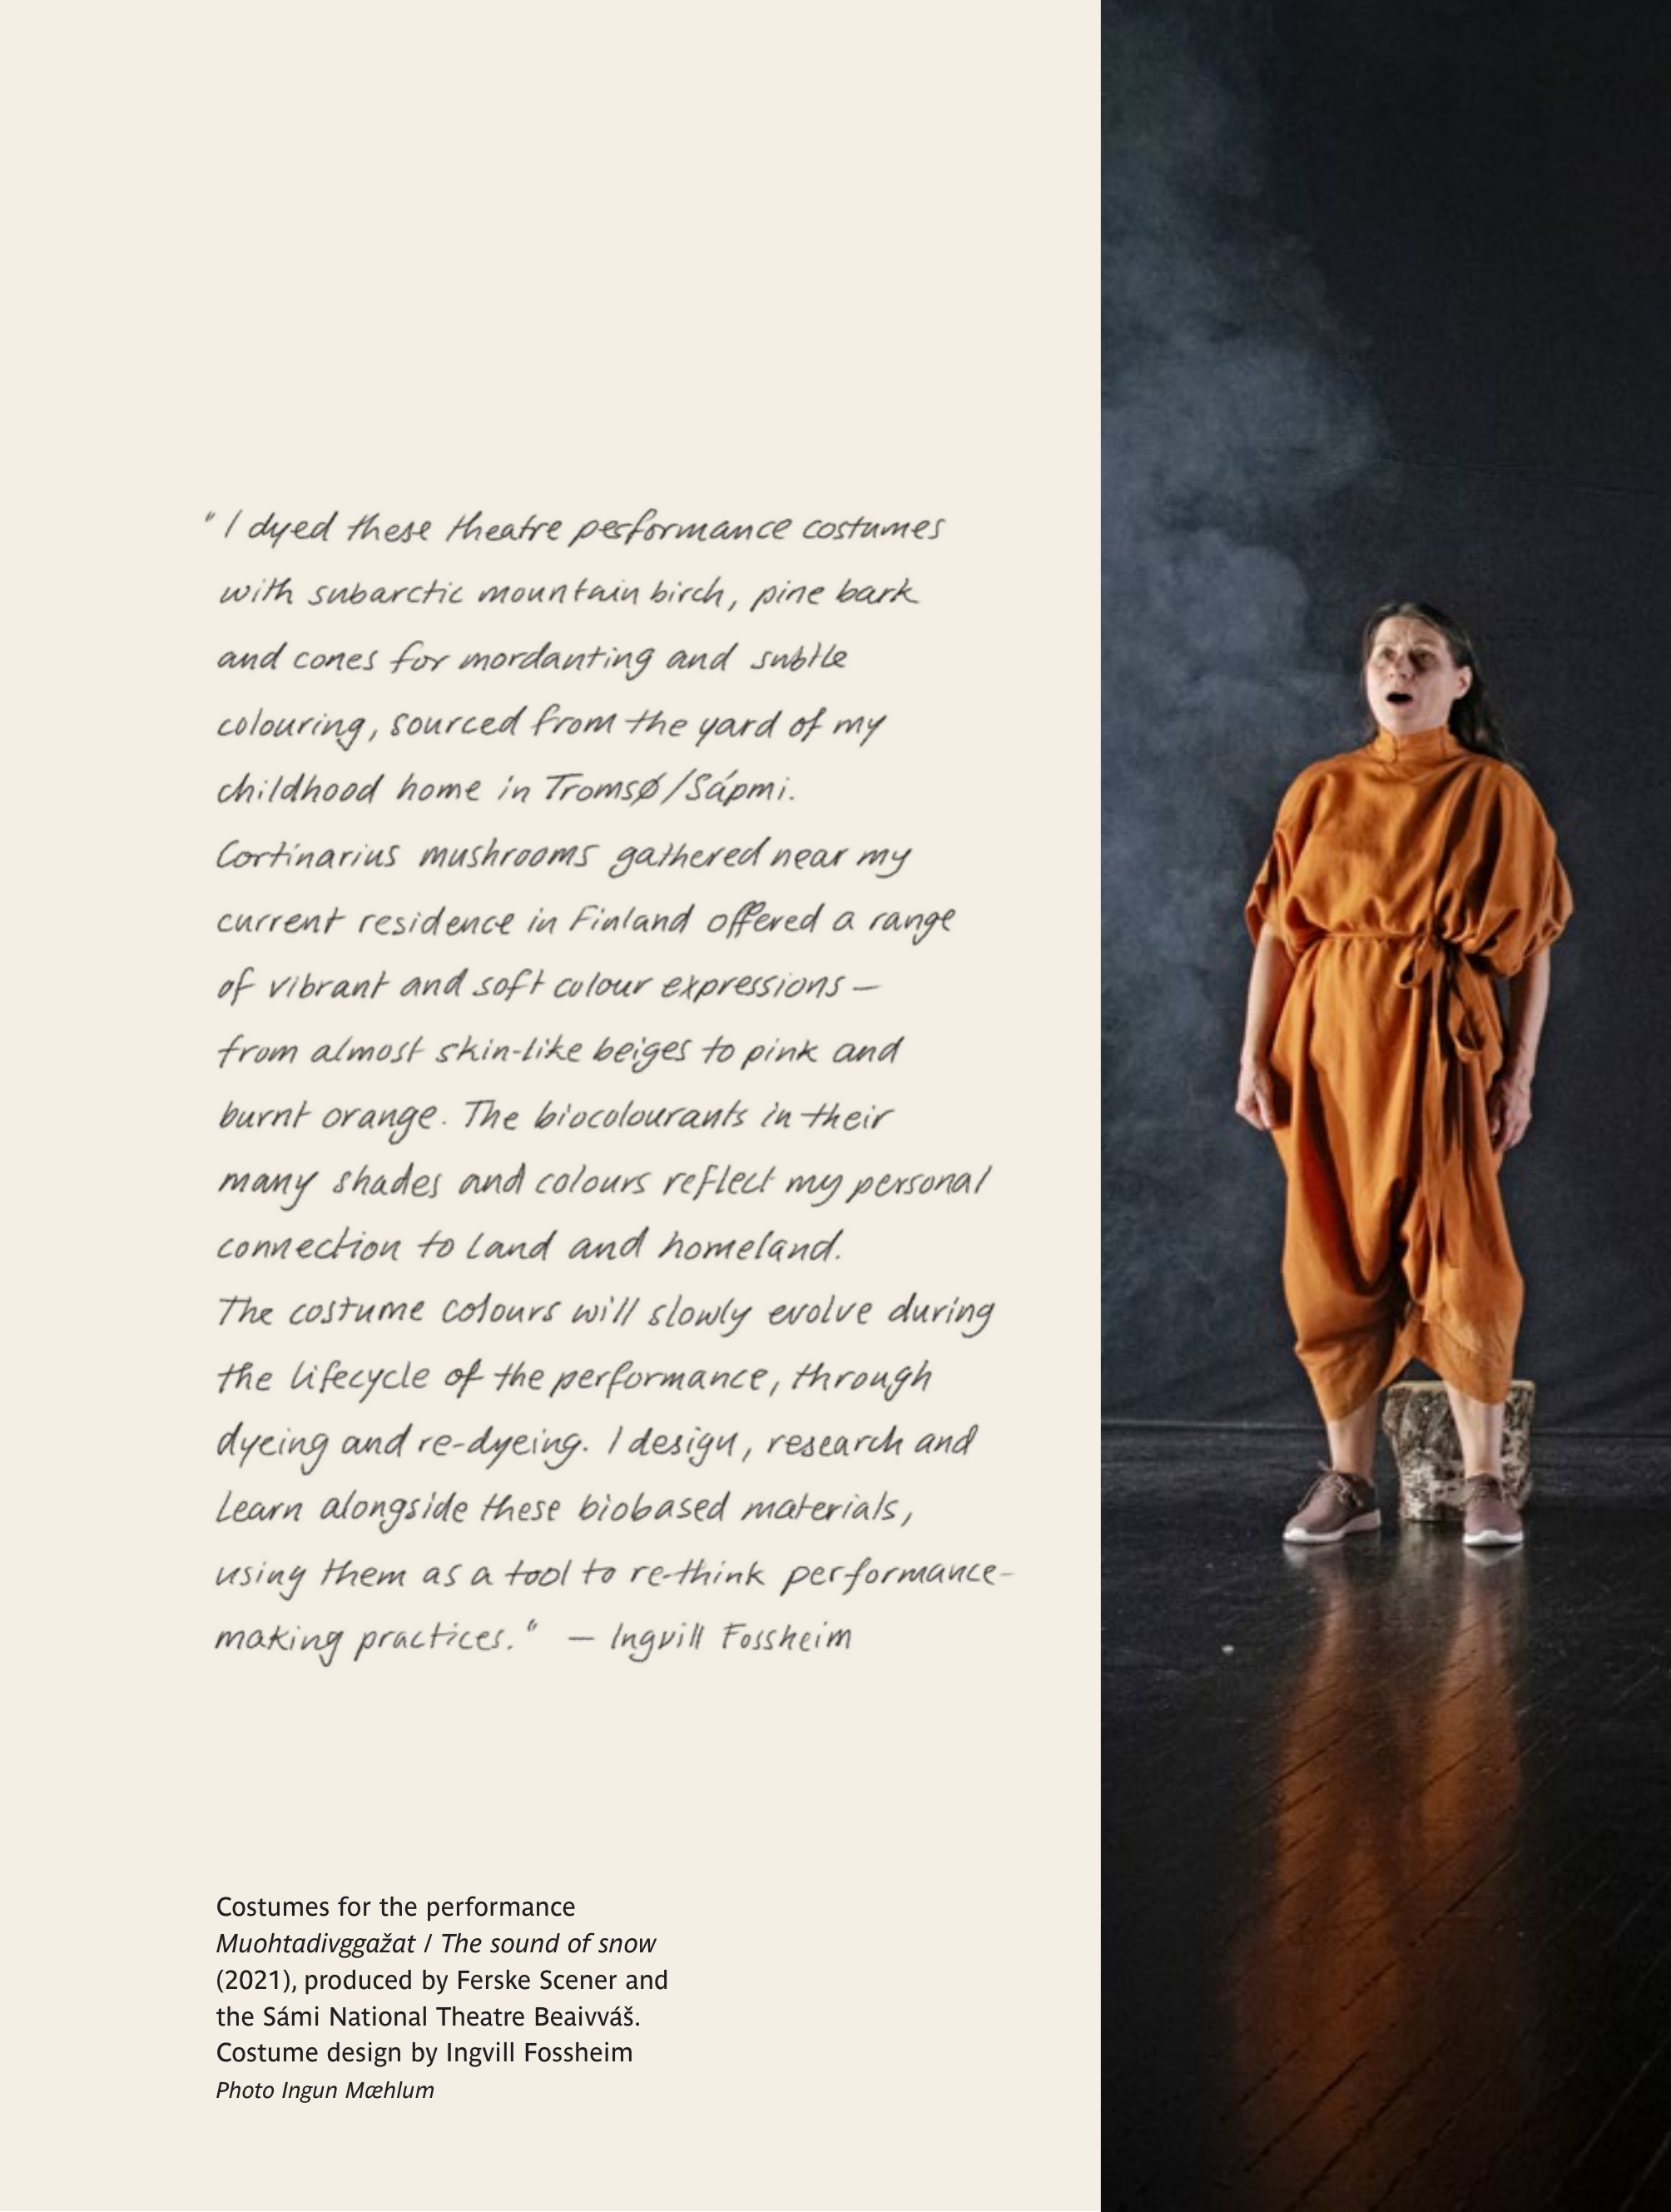 "I dyed these theatre performance costumes
with subarctic mountain birch, pine bark
and cones for mordanting and subtle
colouring, sourced from the yard of my
childhood home in Tromsø/Sápmi.
Cortinarius mushrooms gathered near my
current residence in Finland offered a range
of vibrant and soft colour expressions —
from almost skin-like beiges to pink and
burnt orange. The biocolourants in their
many shades and colours reflect my personal
connection to land and homeland.
The costume colours will slowly evolve during
the lifecycle of the performance, through
dyeing and re-dyeing. I design, research and
learn alongside these biobased materials,
using them as a tool to re-think performance-
making practices." — Ingvill Fossheim
Costumes for the performance
Muohtadivggažat / The sound of snow
(2021), produced by Ferske Scener and
the Sámi National Theatre Beaivváš.
Costume design by Ingvill Fossheim
Photo Ingun Mæhlum